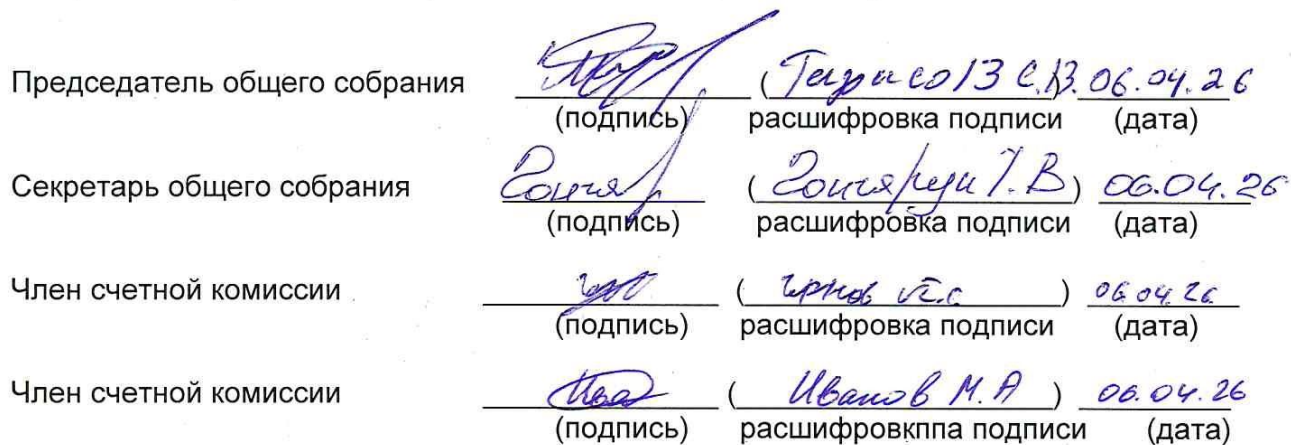 Председатель общего собрания (Тарасов С.В.) 06.04.26
(подпись) расшифровка подписи (дата)
Секретарь общего собрания Гонча (Гончарук Т.В) 06.04.26
(подпись) расшифровка подписи (дата)
Член счетной комиссии ( ) 06.04.26
(подпись) расшифровка подписи (дата)
Член счетной комиссии Ива (Иванов М.А) 06.04.26
(подпись) расшифровкппа подписи (дата)